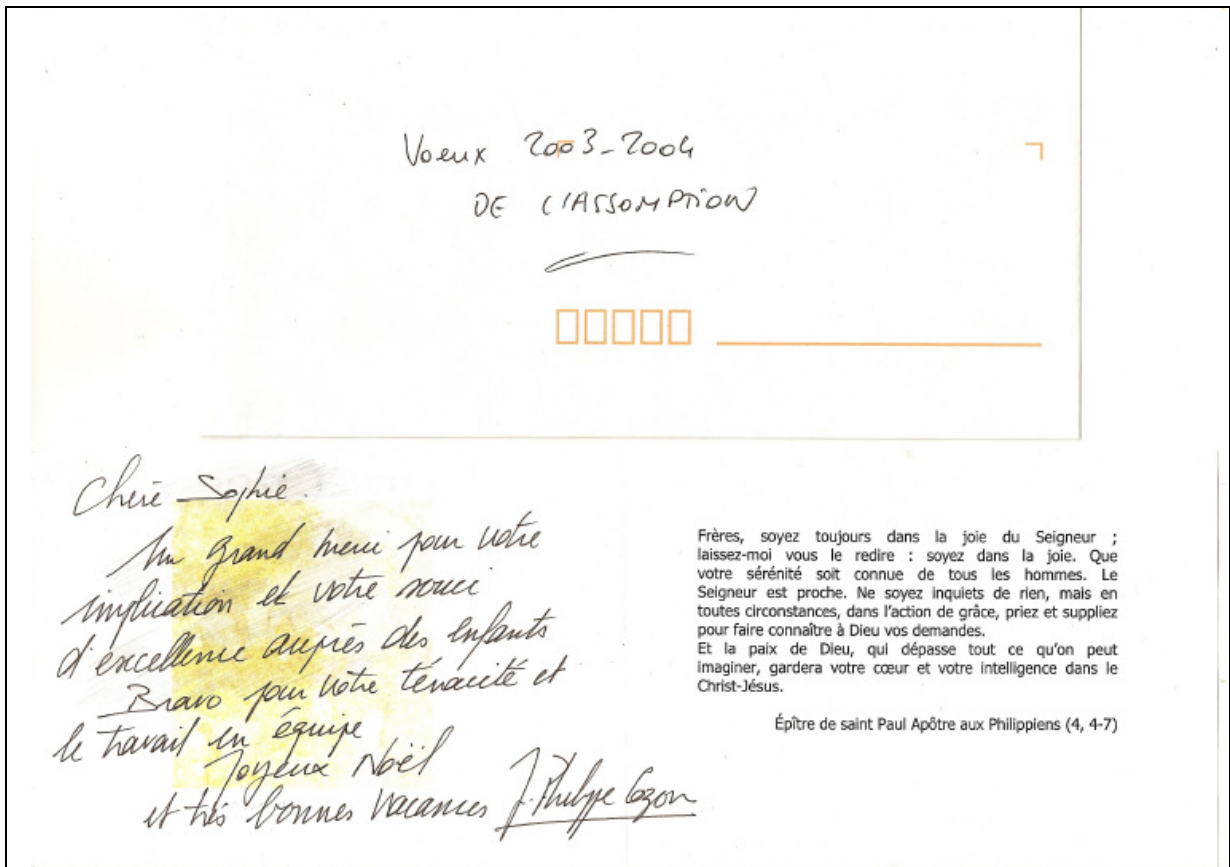 Voeux 2003-2004
DE L'ASSOMPTION
Chère Sophie.
Un grand merci pour votre
implication et votre souci
d'excellence auprès des enfants
Bravo pour votre ténacité et
le travail en équipe
Joyeux Noël
et très bonnes vacances J. Philippe
Frères, soyez toujours dans la joie du Seigneur ;
laissez-moi vous le redire : soyez dans la joie. Que
votre sérénité soit connue de tous les hommes. Le
Seigneur est proche. Ne soyez inquiets de rien, mais en
toutes circonstances, dans l'action de grâce, priez et suppliez
pour faire connaître à Dieu vos demandes.
Et la paix de Dieu, qui dépasse tout ce qu'on peut
imaginer, gardera votre cœur et votre intelligence dans le
Christ-Jésus.
Épître de saint Paul Apôtre aux Philippiens (4, 4-7)